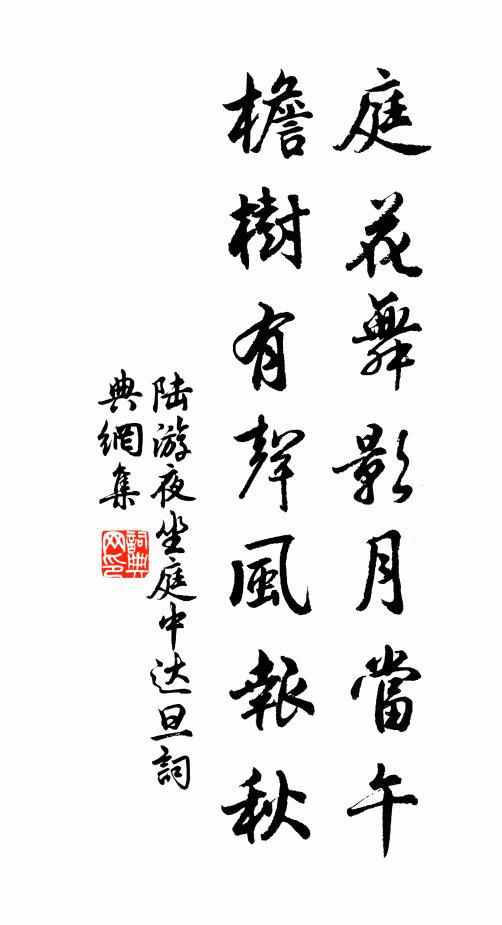 庭花舞影月當午
檐樹有聲風報秋
陸游夜坐庭中达旦詞
典網集
詞典
网印